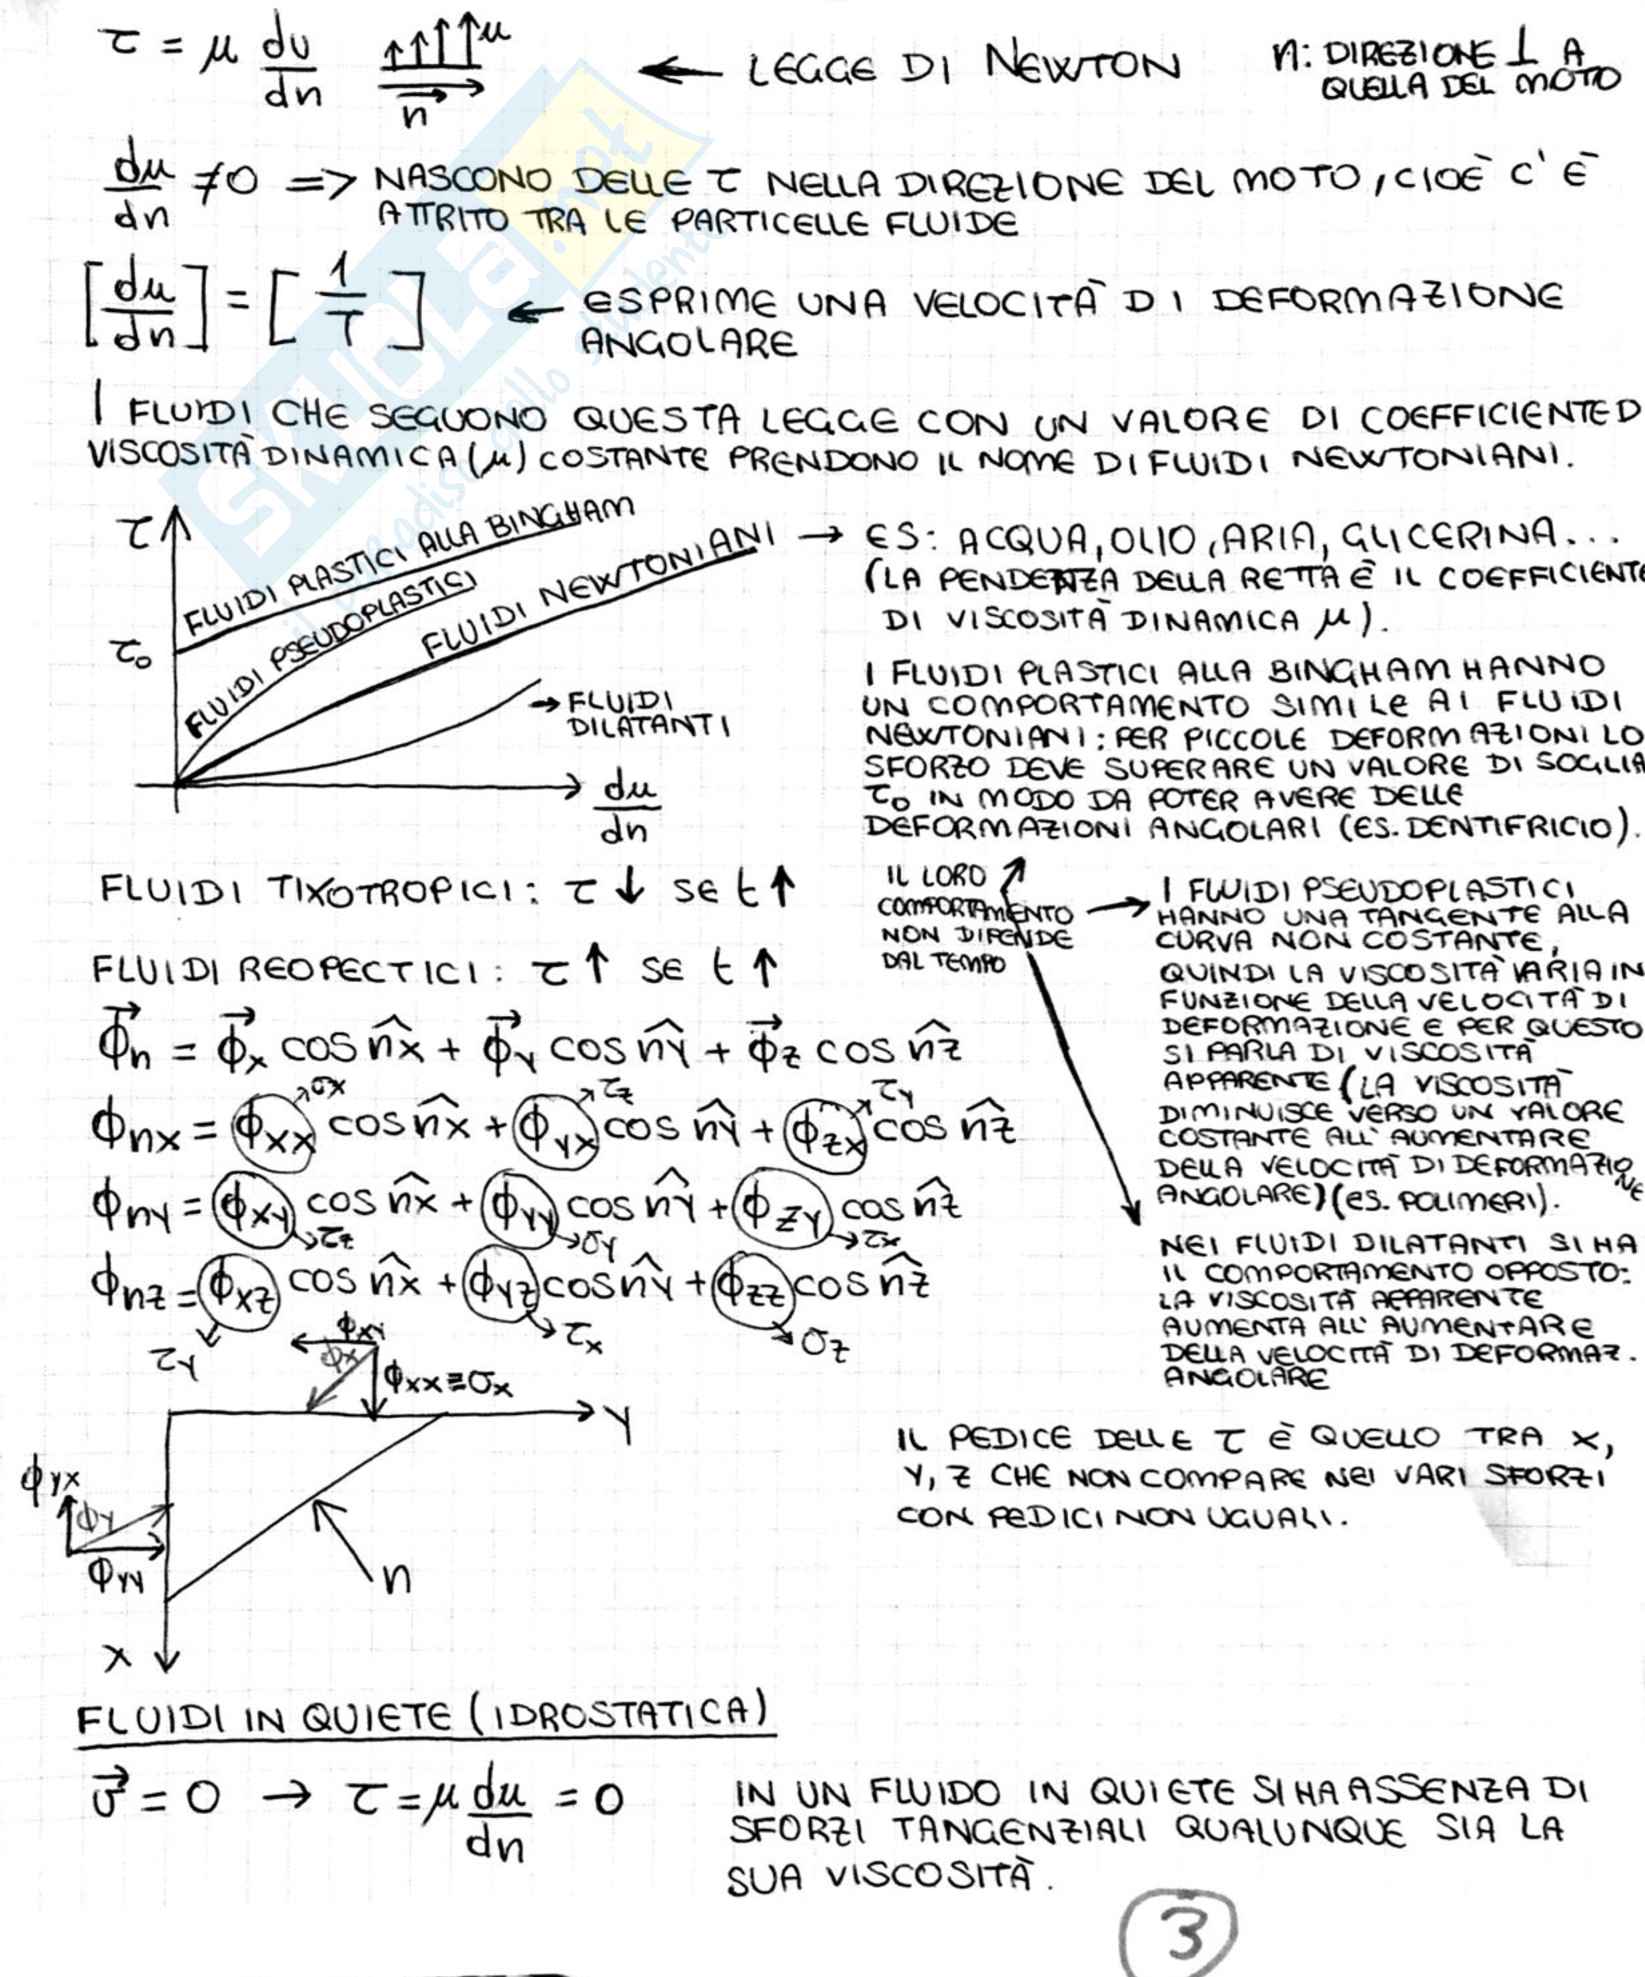 τ = μ du/dn u n ← LEGGE DI NEWTON n: DIREZIONE ⊥ A
QUELLA DEL MOTO
du/dn ≠ 0 => NASCONO DELLE τ NELLA DIREZIONE DEL MOTO, CIOÈ C'È
ATTRITO TRA LE PARTICELLE FLUIDE
[du/dn] = [1/T] ← ESPRIME UNA VELOCITÀ DI DEFORMAZIONE
ANGOLARE
I FLUIDI CHE SEGUONO QUESTA LEGGE CON UN VALORE DI COEFFICIENTE D
VISCOSITÀ DINAMICA (μ) COSTANTE PRENDONO IL NOME DI FLUIDI NEWTONIANI.
τ
τ₀
FLUIDI PLASTICI ALLA BINGHAM
FLUIDI PSEUDOPLASTICI
FLUIDI NEWTONIANI
→ FLUIDI
DILATANTI
du/dn
→ ES: ACQUA, OLIO, ARIA, GLICERINA...
(LA PENDENZA DELLA RETTA È IL COEFFICIENTE
DI VISCOSITÀ DINAMICA μ).
I FLUIDI PLASTICI ALLA BINGHAM HANNO
UN COMPORTAMENTO SIMILE AI FLUIDI
NEWTONIANI: PER PICCOLE DEFORMAZIONI LO
SFORZO DEVE SUPERARE UN VALORE DI SOGLIA
τ₀ IN MODO DA POTER AVERE DELLE
DEFORMAZIONI ANGOLARI (ES. DENTIFRICIO).
FLUIDI TIXOTROPICI: τ ↓ SE t ↑
FLUIDI REOPECTICI: τ ↑ SE t ↑
IL LORO
COMPORTAMENTO
NON DIPENDE
DAL TEMPO
I FLUIDI PSEUDOPLASTICI
HANNO UNA TANGENTE ALLA
CURVA NON COSTANTE,
QUINDI LA VISCOSITÀ VARIA IN
FUNZIONE DELLA VELOCITÀ DI
DEFORMAZIONE E PER QUESTO
SI PARLA DI VISCOSITÀ
APPARENTE (LA VISCOSITÀ
DIMINUISCE VERSO UN VALORE
COSTANTE ALL'AUMENTARE
DELLA VELOCITÀ DI DEFORMAZIONE
ANGOLARE) (ES. POLIMERI).
NEI FLUIDI DILATANTI SI HA
IL COMPORTAMENTO OPPOSTO:
LA VISCOSITÀ APPARENTE
AUMENTA ALL'AUMENTARE
DELLA VELOCITÀ DI DEFORMAZ.
ANGOLARE
Φ⃗n = Φ⃗x cos n̂x + Φ⃗y cos n̂y + Φ⃗z cos n̂z
σx τz τy
Φnx = Φxx cos n̂x + Φyx cos n̂y + Φzx cos n̂z
Φny = Φxy cos n̂x + Φyy cos n̂y + Φzy cos n̂z
τz σy τx
Φnz = Φxz cos n̂x + Φyz cos n̂y + Φzz cos n̂z
τy τx σz
Φxy
Φx
Φxx ≡ σx
y
Φyx
Φy
Φyy
n
x
IL PEDICE DELLE τ È QUELLO TRA X,
Y, Z CHE NON COMPARE NEI VARI SFORZI
CON PEDICI NON UGUALI.
FLUIDI IN QUIETE (IDROSTATICA)
v⃗ = 0 → τ = μ du/dn = 0
IN UN FLUIDO IN QUIETE SI HA ASSENZA DI
SFORZI TANGENZIALI QUALUNQUE SIA LA
SUA VISCOSITÀ.
3
SKUOLA.net